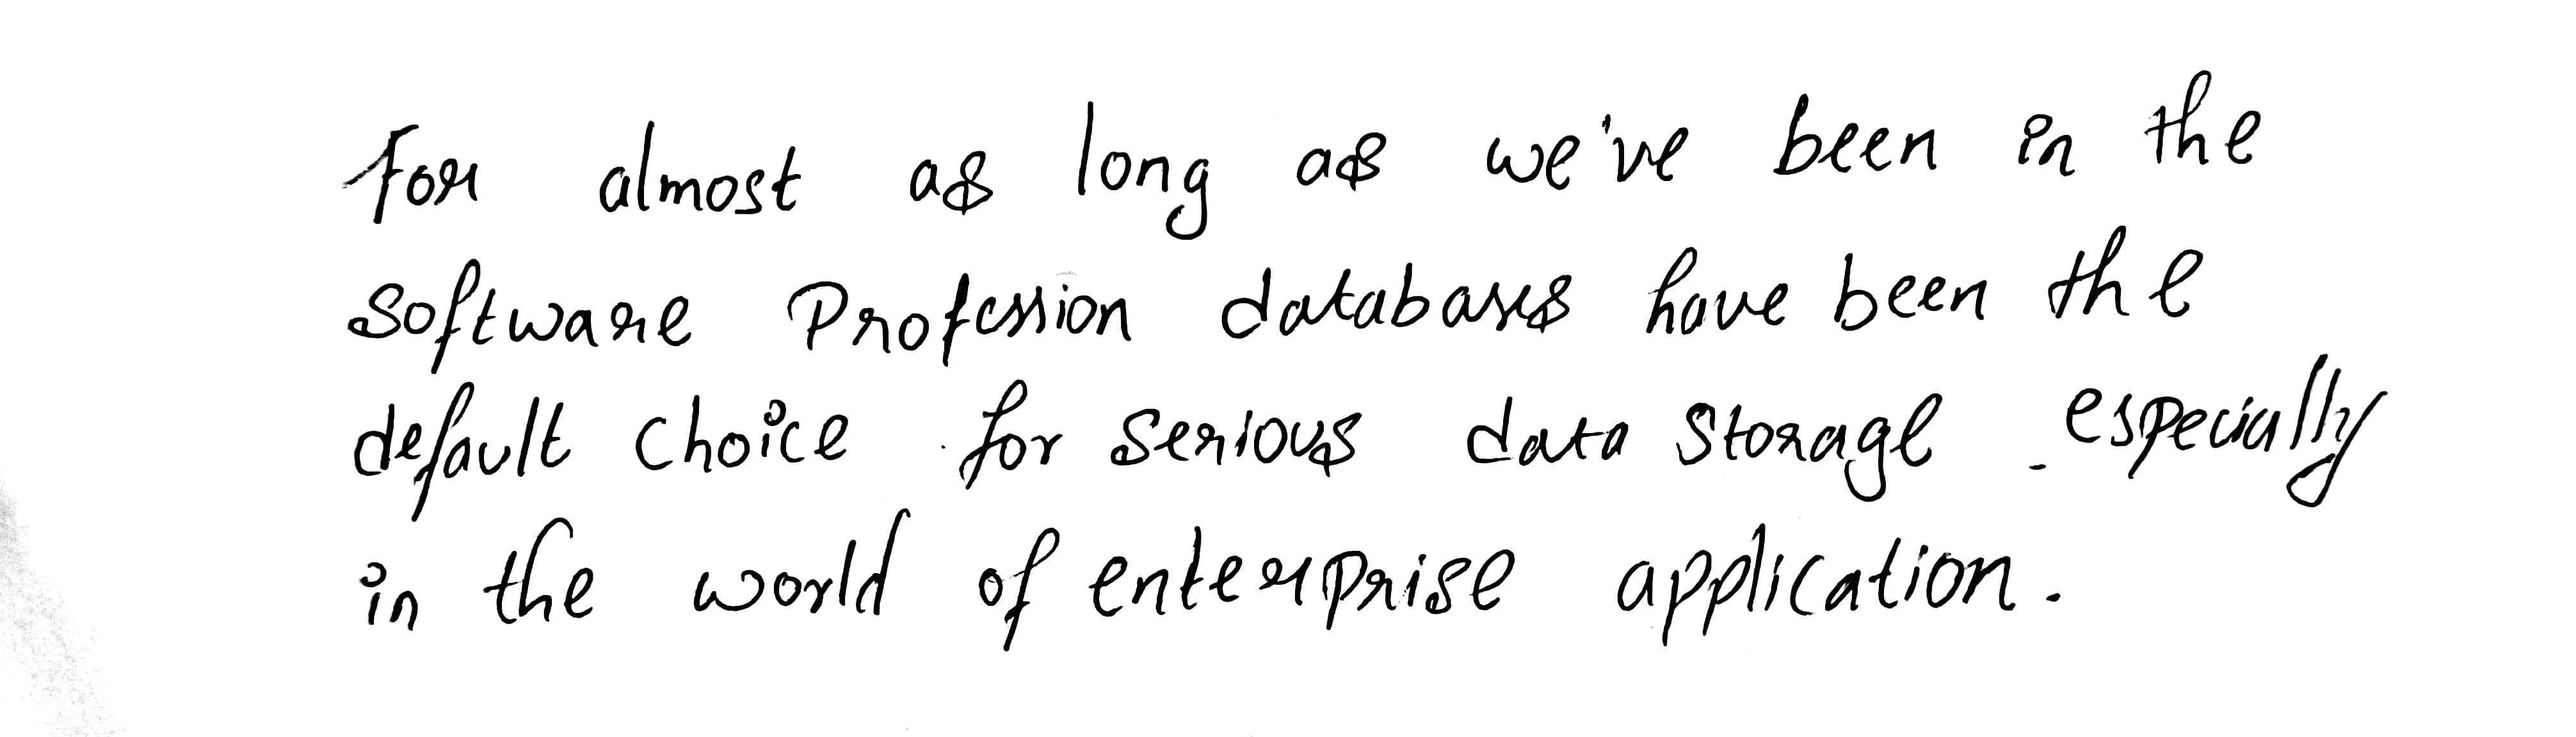 For almost as long as we've been in the
Software Profession databases have been the
default choice for serious data storage especially
in the world of enterprise application.